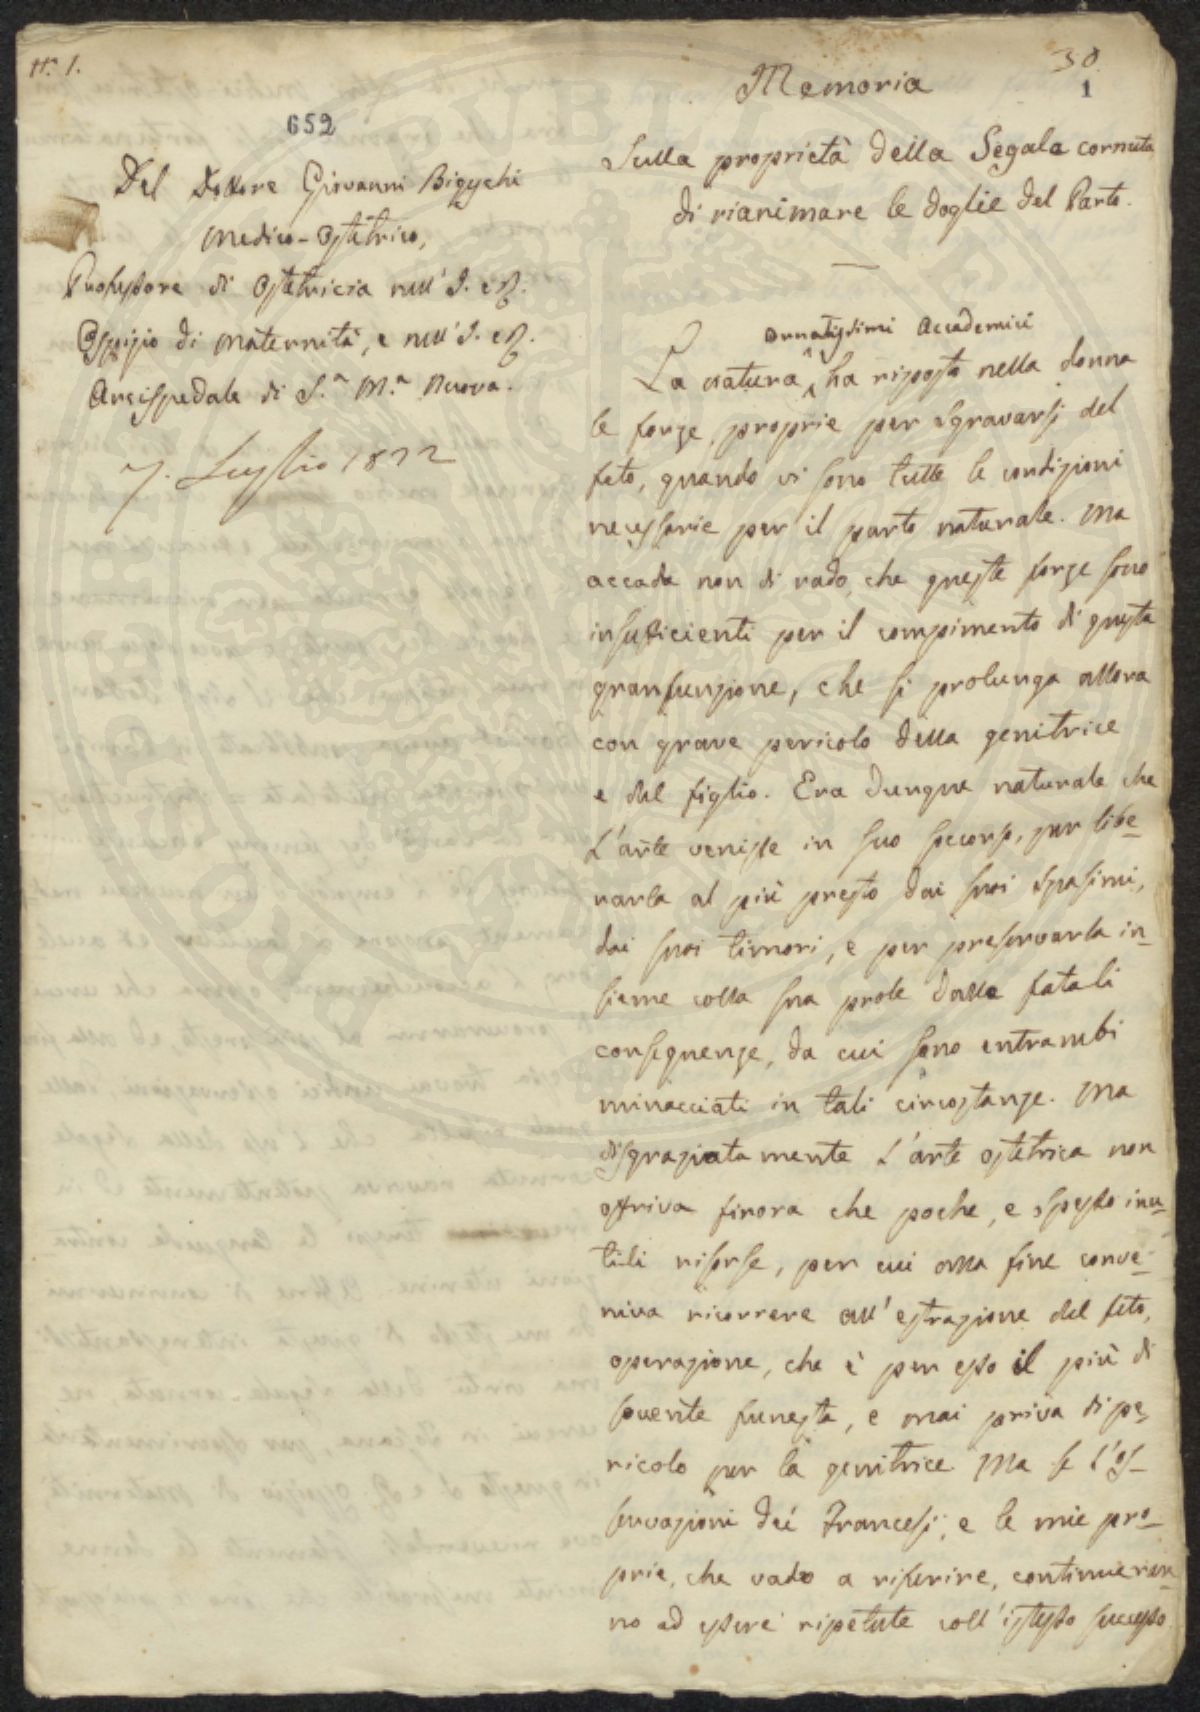 N.° 1.
652
Del Dottore Giovanni Bigeschi
Medico-Ostetrico,
Professore di Ostetricia nell' I. e R.
Ospizio di Maternità, e nell' I. e R.
Arcispedale di S.ª M.ª Nuova.
7. Luglio 1822
30
1
Memoria
Sulla proprietà della Segale cornuta
di rianimare le doglie del Parto.
Ornatissimi Accademici
La natura ha riposto nella donna
le forze proprie per sgravarsi del
feto, quando vi sono tutte le condizioni
necessarie per il parto naturale. Ma
accade non di rado, che queste forze sono
insufficienti per il compimento di questa
gran funzione, che si prolunga allora
con grave pericolo della genitrice
e del figlio. Era dunque naturale che
l'arte venisse in suo soccorso, per libe-
rarla al più presto dai suoi spasimi,
dai suoi timori, e per preservarla in-
sieme colla sua prole dalle fatali
conseguenze, da cui sono entrambi
minacciati in tali circostanze. Ma
disgraziatamente l'arte ostetrica non
offriva finora che poche, e spesso inu-
tili risorse, per cui alla fine conve-
niva ricorrere all'estrazione del feto,
operazione, che è per esso il più di
sovente funesta, e mai priva di pe-
ricolo per la genitrice. Ma se l'os-
servazioni dei Francesi, e le mie pro-
prie, che vado a riferire, continueran-
no ad essere ripetute coll'istesso successo